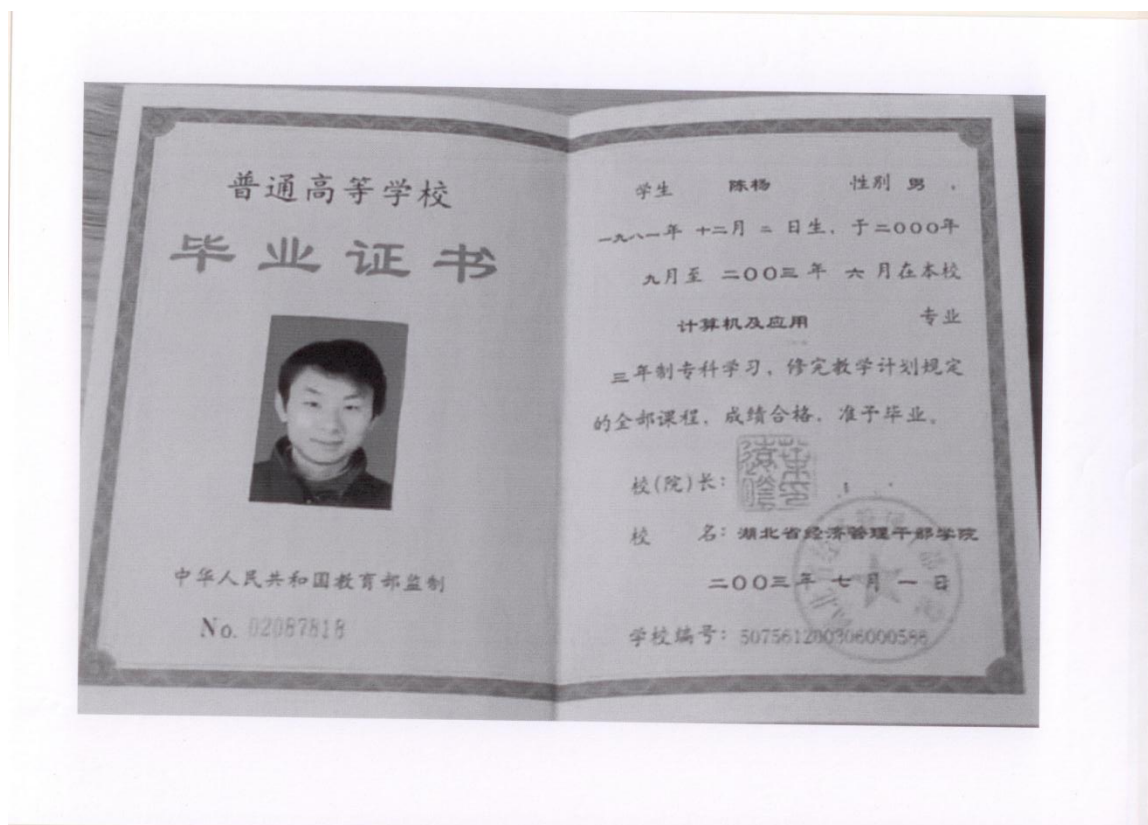 普通高等学校
毕业证书
中华人民共和国教育部监制
No. 02087818
学生 陈杨 性别 男 ,
一九八一年 十二月 二 日生, 于二000年
九月至 二00三 年 六 月在本校
计算机及应用 专业
三年制专科学习, 修完教学计划规定
的全部课程, 成绩合格, 准予毕业。
校(院)长:
校 名: 湖北省经济管理干部学院
二00三年 七 月 一 日
学校编号: 507561200306000586